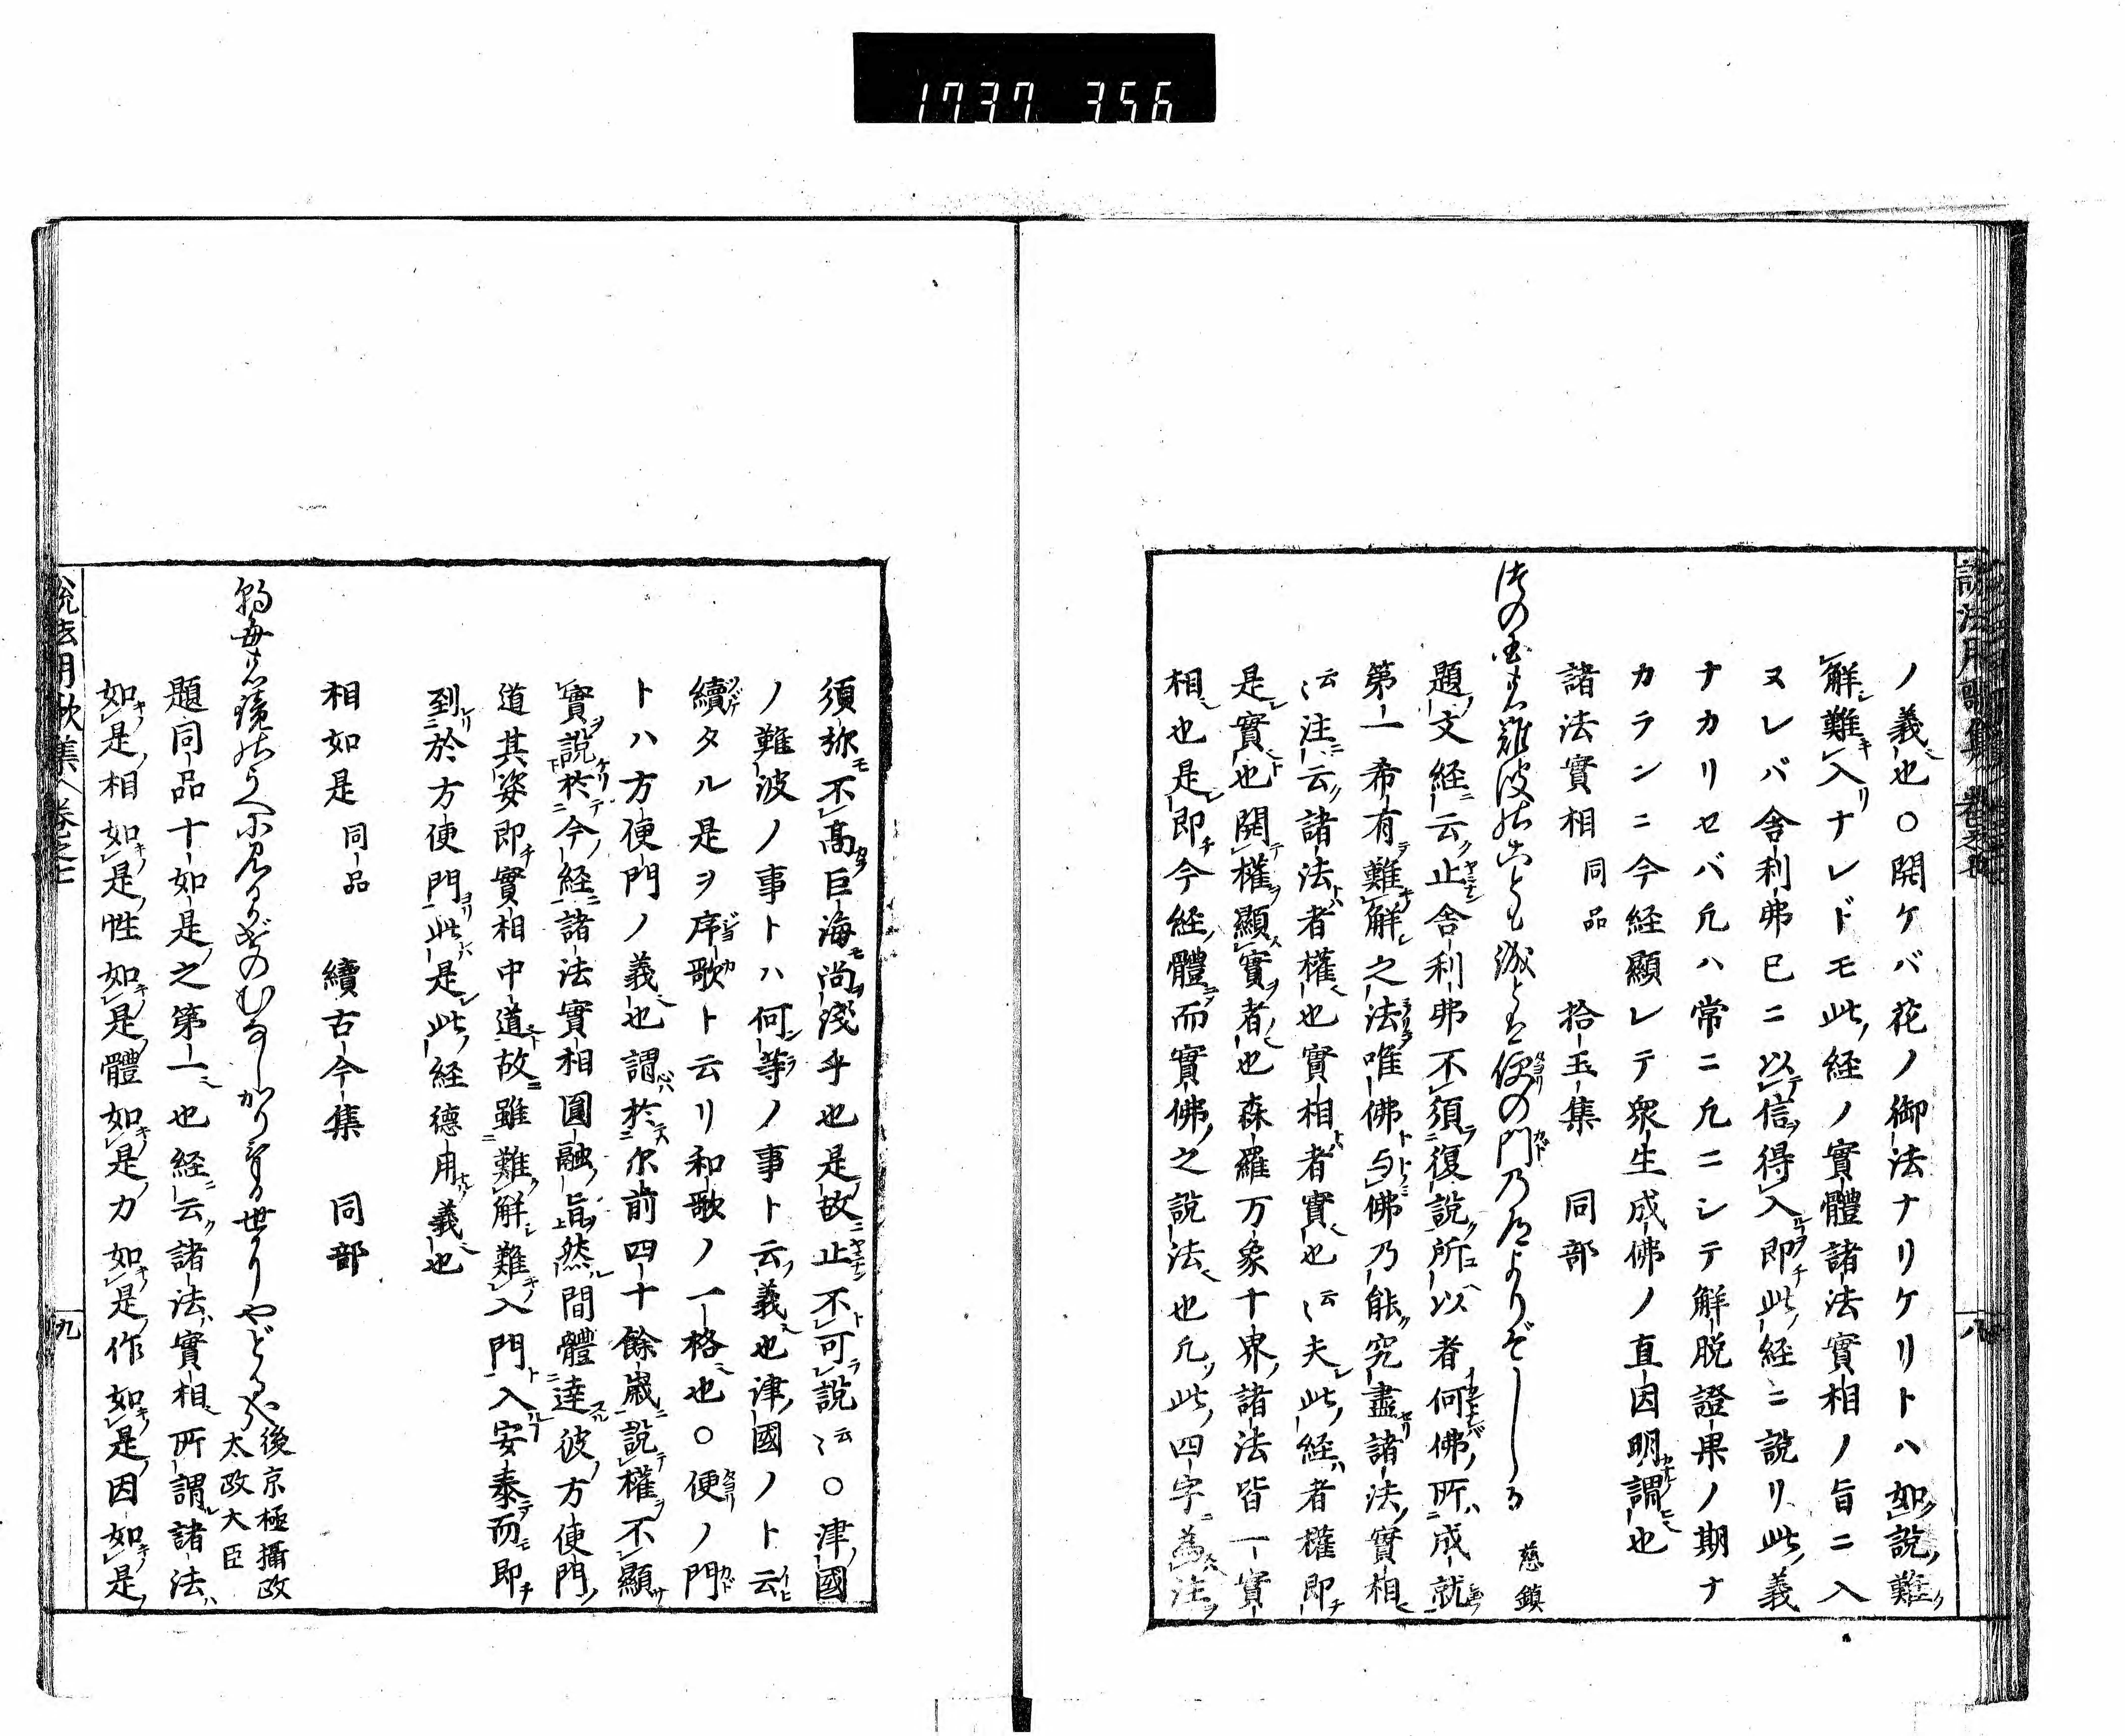 1737 356
ノ義也○開ケバ花ノ御法ナリケリトハ如説難
解難入ナレドモ此経ノ實體諸法實相ノ旨ニ入
ヌレバ舎利弗巳ニ以信得入即此経ニ説リ此義
ナカリセバ凢ハ常ニ凢ニシテ解脱證果ノ期ナ
カランニ今経顯レテ衆生成佛ノ直因明謂也
諸法實相 同品 拾玉集 同部
津の国の難波のことも誠とは便の門の道よりぞしる 慈鎮
題文経云止舎利弗不須復説所以者何佛所成就
第一希有難解之法唯佛与佛乃能究盡諸法實相
云〻注云諸法者權也實相者實也云〻夫此経者權即
是實也開權顯實者也森羅万象十界諸法皆一實
相也是即今経體而實佛之説法也凢此四字為注
須弥不高巨海尚淺乎也是故止不可説云〻○津國
ノ難波ノ事トハ何等ノ事ト云義也津國ノト云
續タル是ヲ序歌ト云リ和歌ノ一格也○便ノ門
トハ方便門ノ義也謂於尓前四十餘歳説權不顯
實説於今経諸法實相圓融旨然間體達彼方便門
道其姿即實相中道故雖難解難入門入安泰而即
到於方便門此是此経德用義也
相如是 同品 續古今集 同部
後京極攝政
太政大臣
題同品十如是之第一也経云諸法實相所謂諸法
如是相如是性如是體如是力如是作如是因如是
説法用歌集 卷之七
九
八